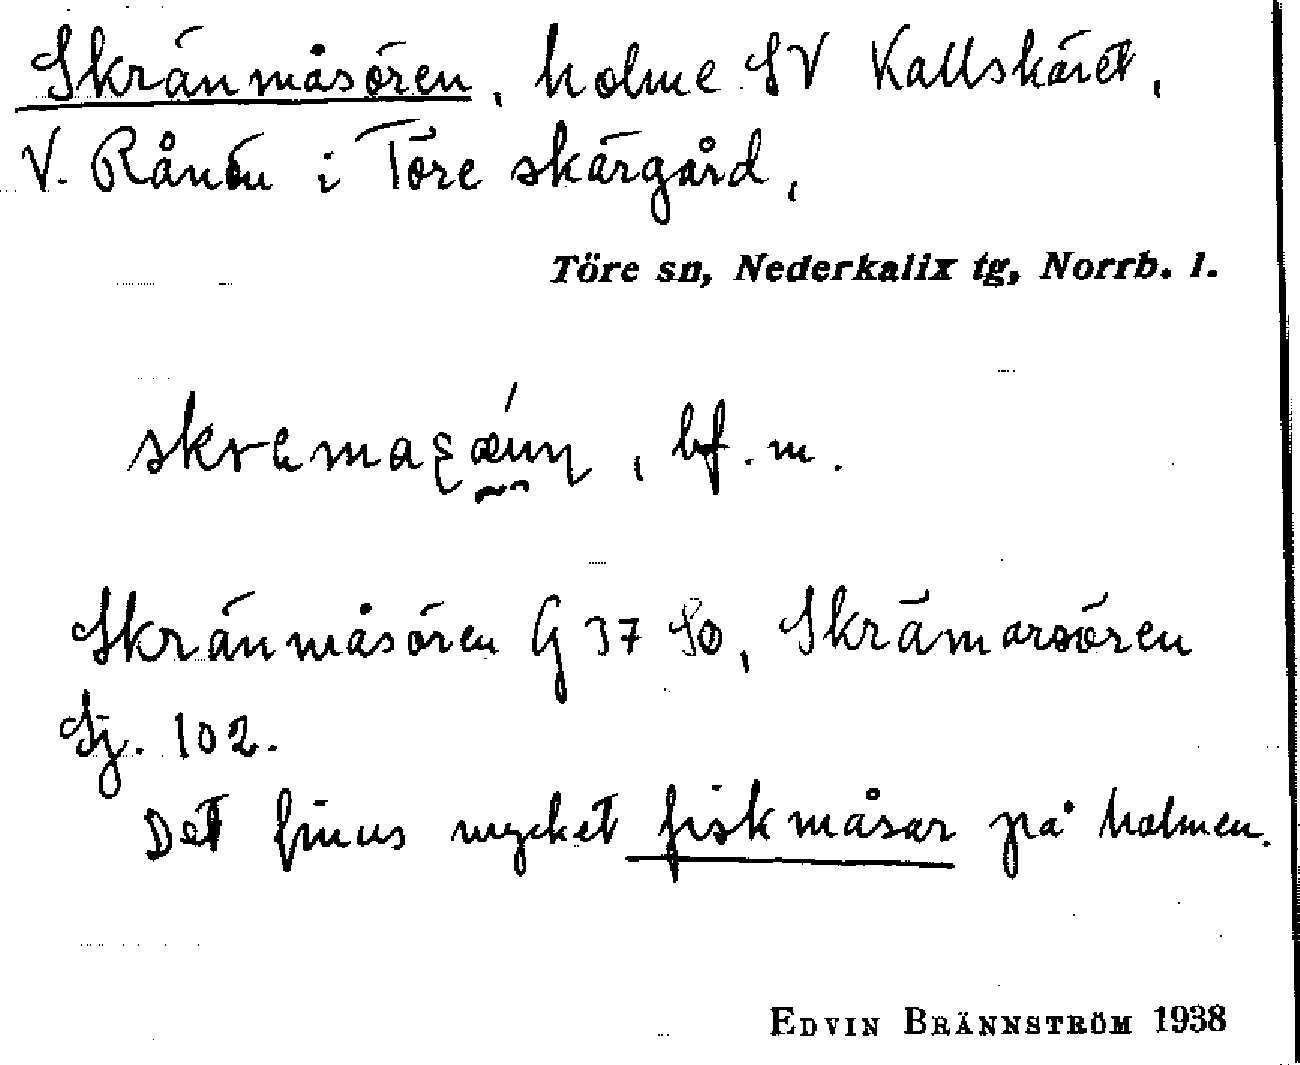 Skränmåsören, holme SV Kallskäret,
V. Rånön i Töre skärgård,
Töre sn, Nederkalix tg, Norrb. l.
bf. m.
Skränmåsören G 37 SO, Skrämarsören
Sj. 102.
Det finns mycket fiskmåsar på holmen.
EDVIN BRÄNNSTRÖM 1938